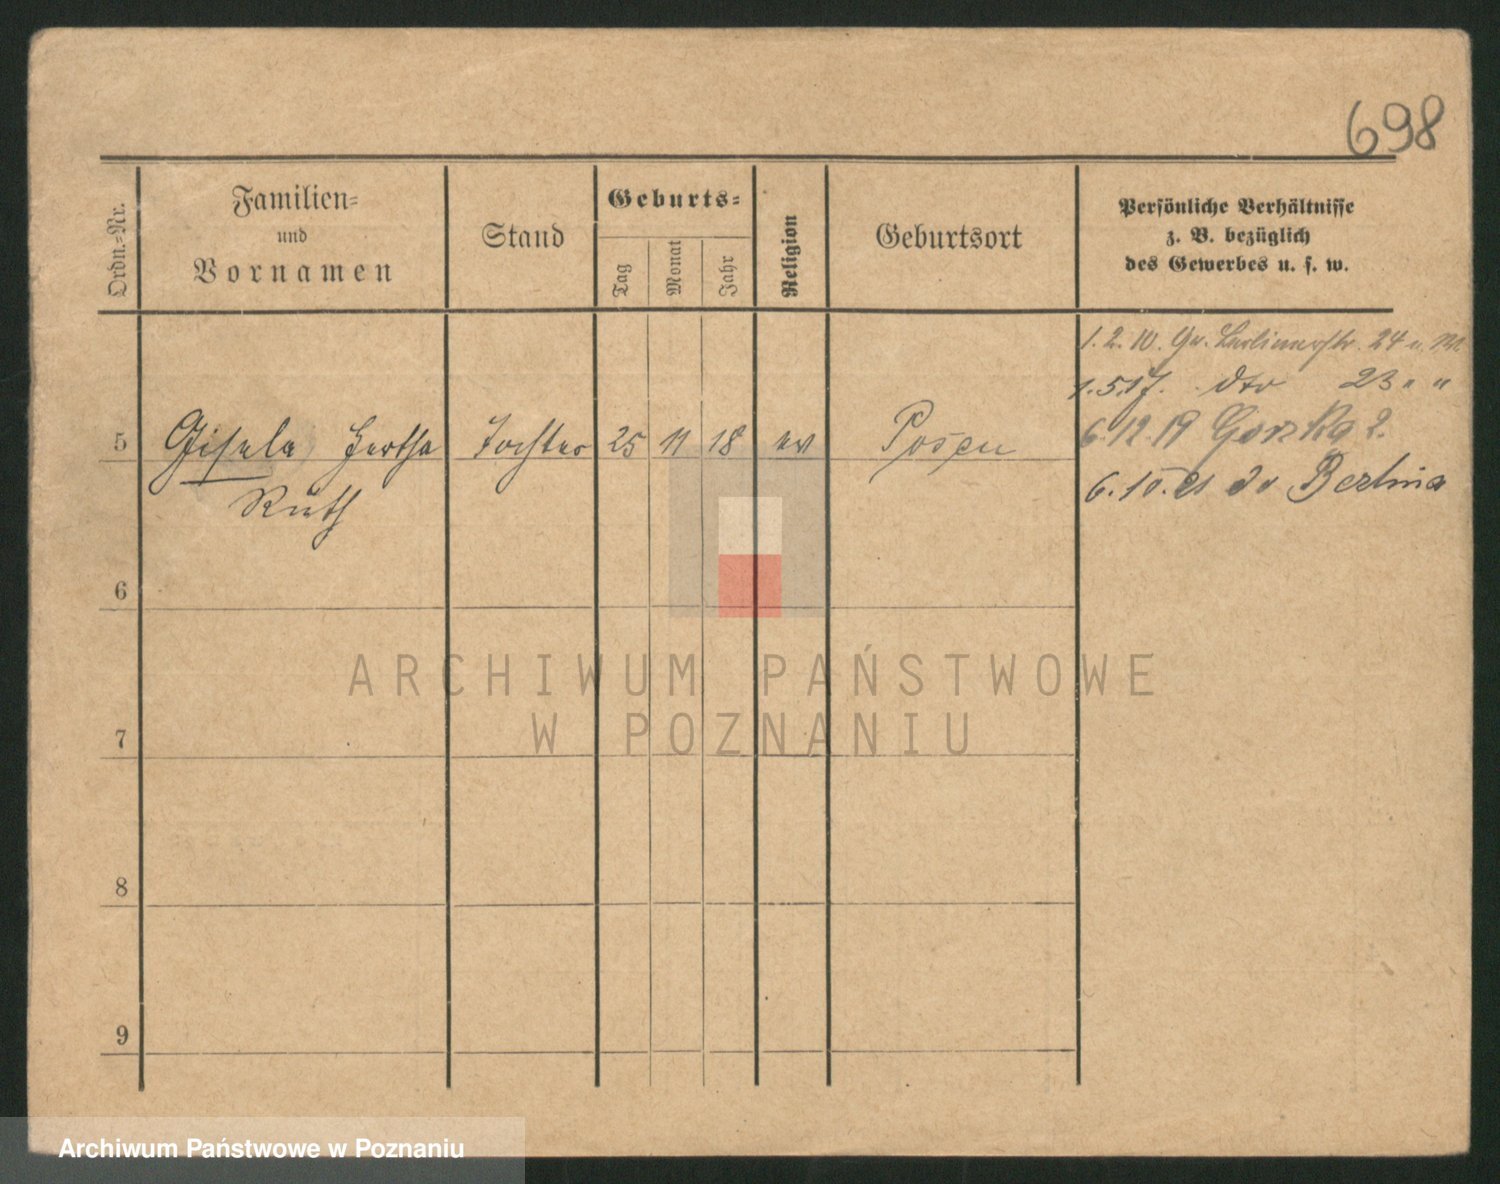 698
Ordn.-Nr.
Familien-
und
Vornamen
Stand
Geburts-
Tag
Monat
Jahr
Religion
Geburtsort
Persönliche Verhältnisse
z. B. bezüglich
des Gewerbes u. s. w.
1. 2. 10. Gr. Berlinerstr. 24
1.5.17. dto 23 " "
6.12.19 Gorzka 2.
5 Gisela Hertha Tochter 25 11 18 ev Posen
Ruth
6. 10. 21 Berlina
6
7
8
9
ARCHIWUM PAŃSTWOWE
W POZNANIU
Archiwum Państwowe w Poznaniu